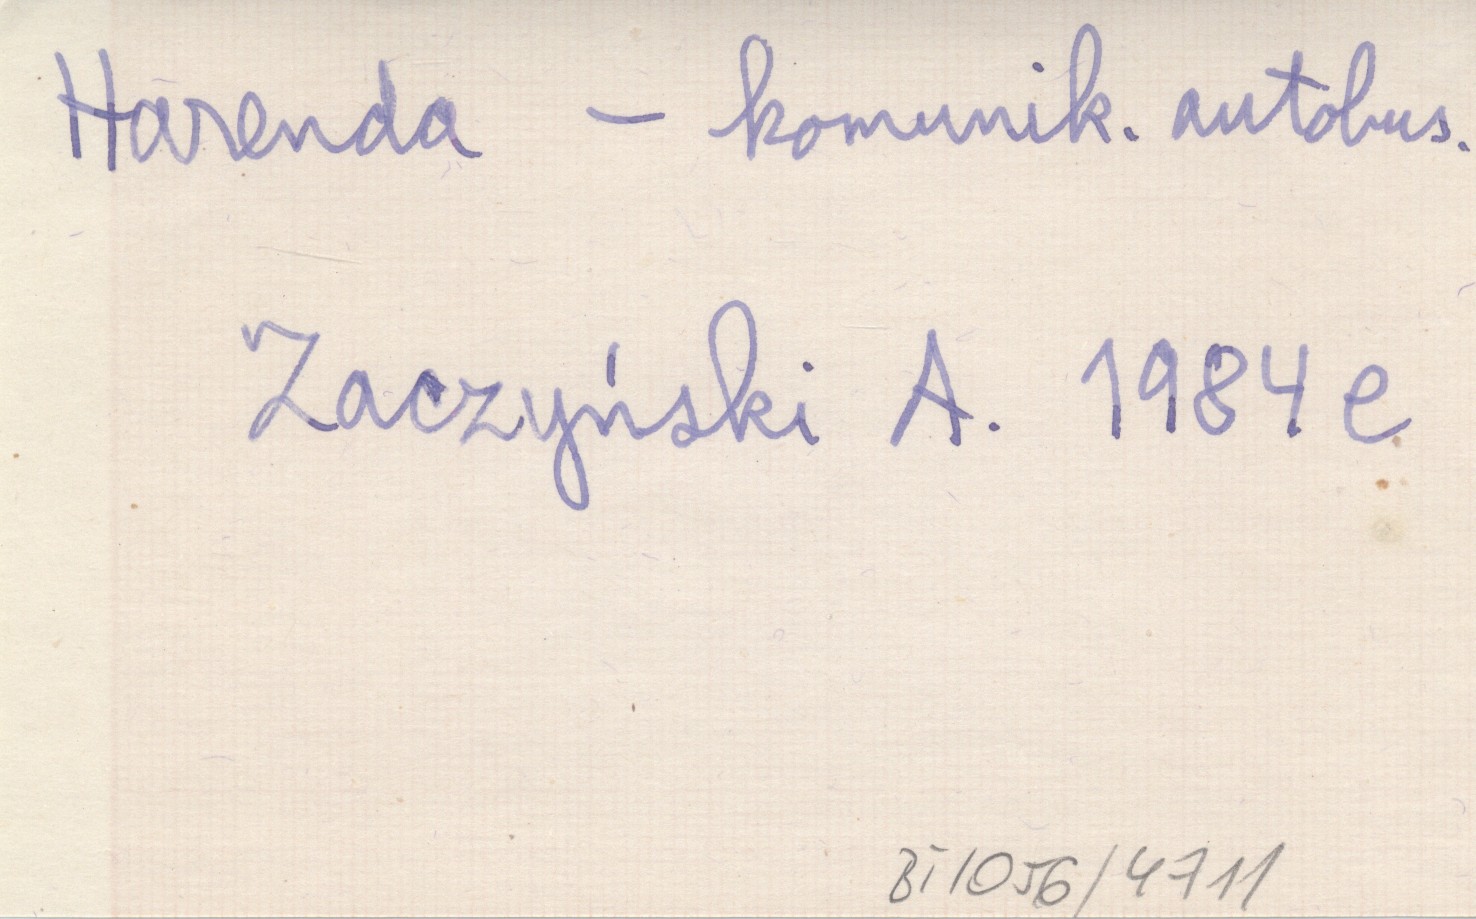 Harenda – komunik. autobus.
Zaczyński A. 1984 e
BT/1056/4711